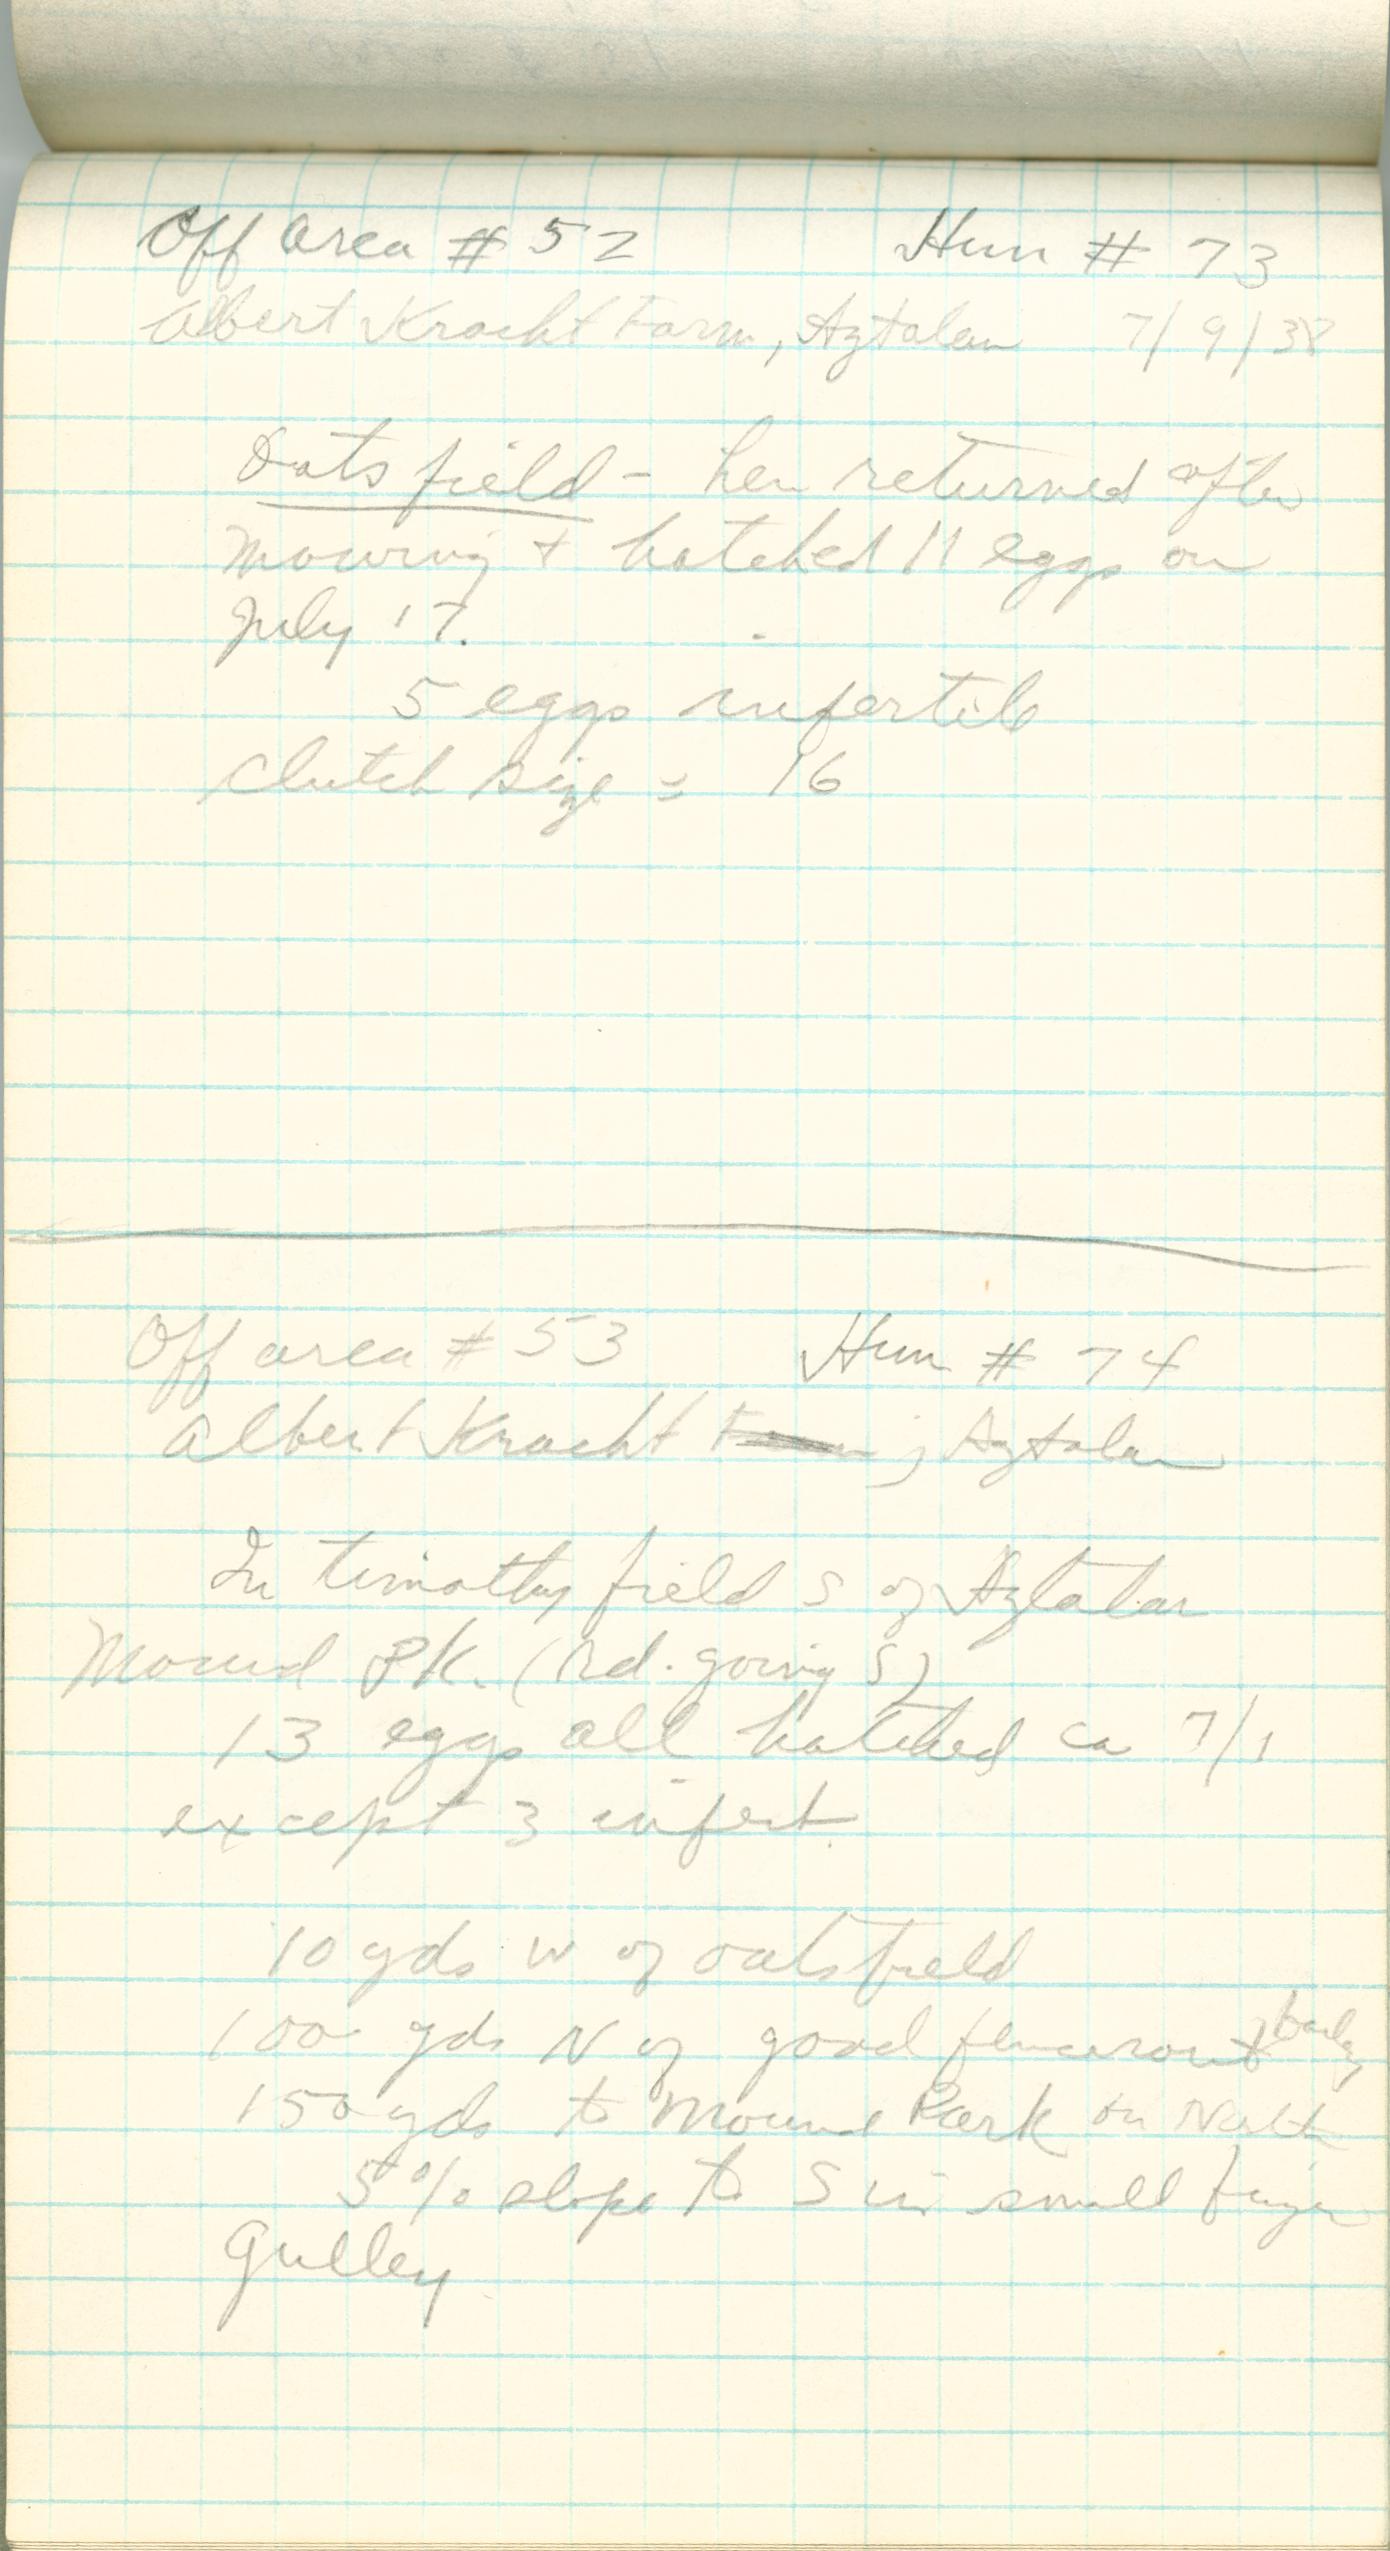 Off area # 52 Hun # 73
Albert Kracht Farm, Aztalan 7/9/38
Oats field - hen returned after
mowing + hatched 11 eggs on
July 17.
5 eggs infertile
Clutch size = 16
Off area # 53 Hun # 74
Albert Kracht Farm, Aztalan
In timothy field S of Aztalan
Mound Pk. (rd. going S)
13 eggs all hatched ca 7/1
except 3 infert.
10 yds W of oatsfield
100 yds N of good fencerow & barley
150 yds to Mound Park on North
5% slope to S in small finger
Gulley